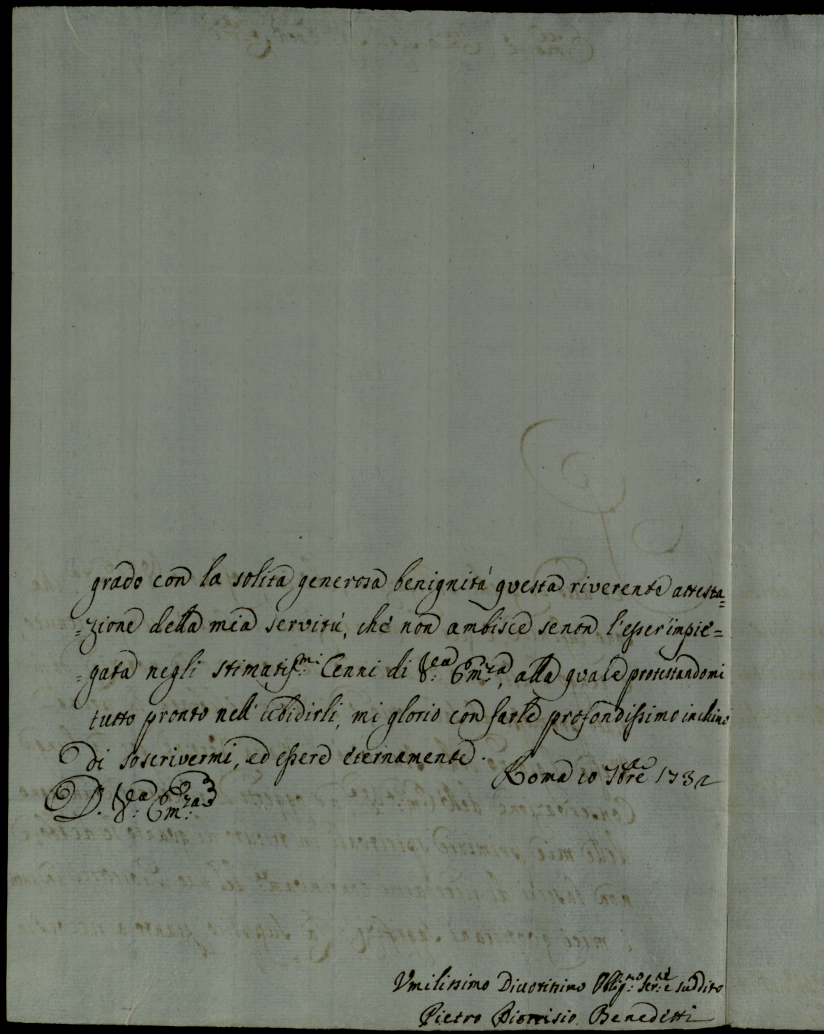 grado con la solita generosa benignità questa riverente attesta=
=zione della mia servitù, che non ambisce senon l'esser impie=
=gata negli stimatiss.mi Cenni di V.ra Em.za, alla quale protestandomi
tutto pronto nell' ubidirli, mi glorio con farle profondissimo inchino
di soscrivermi, ed essere eternamente.
Roma 10 7bre 1732
D. V.ra Em.za
Umilissimo Divotissimo Obligmo Serre e suddito
Pietro Dionisio Benedetti